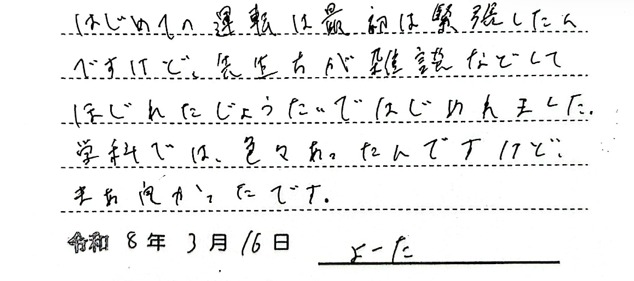 はじめての運転は最初は緊張したん
ですけど、先生方が雑談などして
ほじれたじょうたいではじめれました。
学科では、色々あったんですけど、
まあ良かったです。
令和 8年 3月 16日 よーた